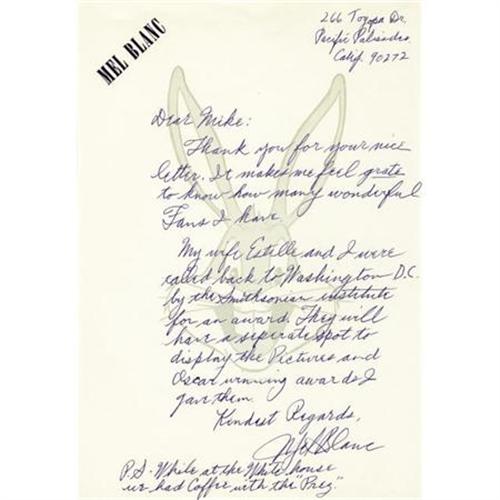 MEL BLANC
266 Toyopa Dr.
Pacific Palisades
Calif. 90272
Dear Mike:
Thank you for your nice
letter. It makes me feel grate
to know how many wonderful
Fans I have.
My wife Estelle and I were
called back to Washington D.C.
by the Smithsonian institute
for an award. They will
have a seperate spot to
display the Pictures and
Oscar winning awards I
gave them.
Kindest Regards,
Mel Blanc
P.S. While at the White house
we had Coffee with the "Prez"